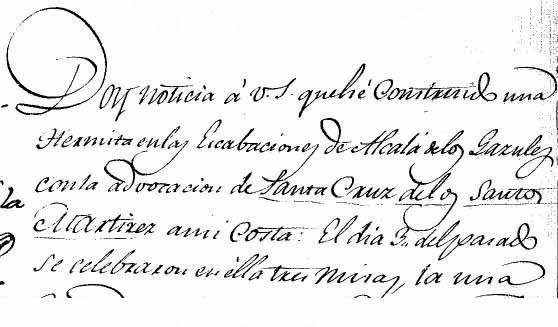 Doy noticia á V.S. que hé Construido una
Hermita en las Escabaciones de Alcalá de los Gazules
con la advocacion de Santa Cruz de los Santos
Martirez a mi Costa: El dia 3. del pasado
se celebraron en élla tres Misas, la una